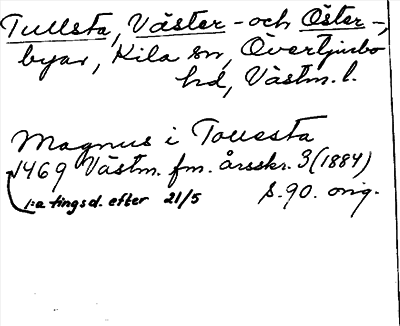 Tullsta, Väster- och Öster-,
byar, Kila sn, Övertjurbo
hd, Västm. l.
Magnus i Touesta
1469 Västm. fm. årsskr. 3 (1884)
1:a tingsd. efter 21/5 s. 90. orig.